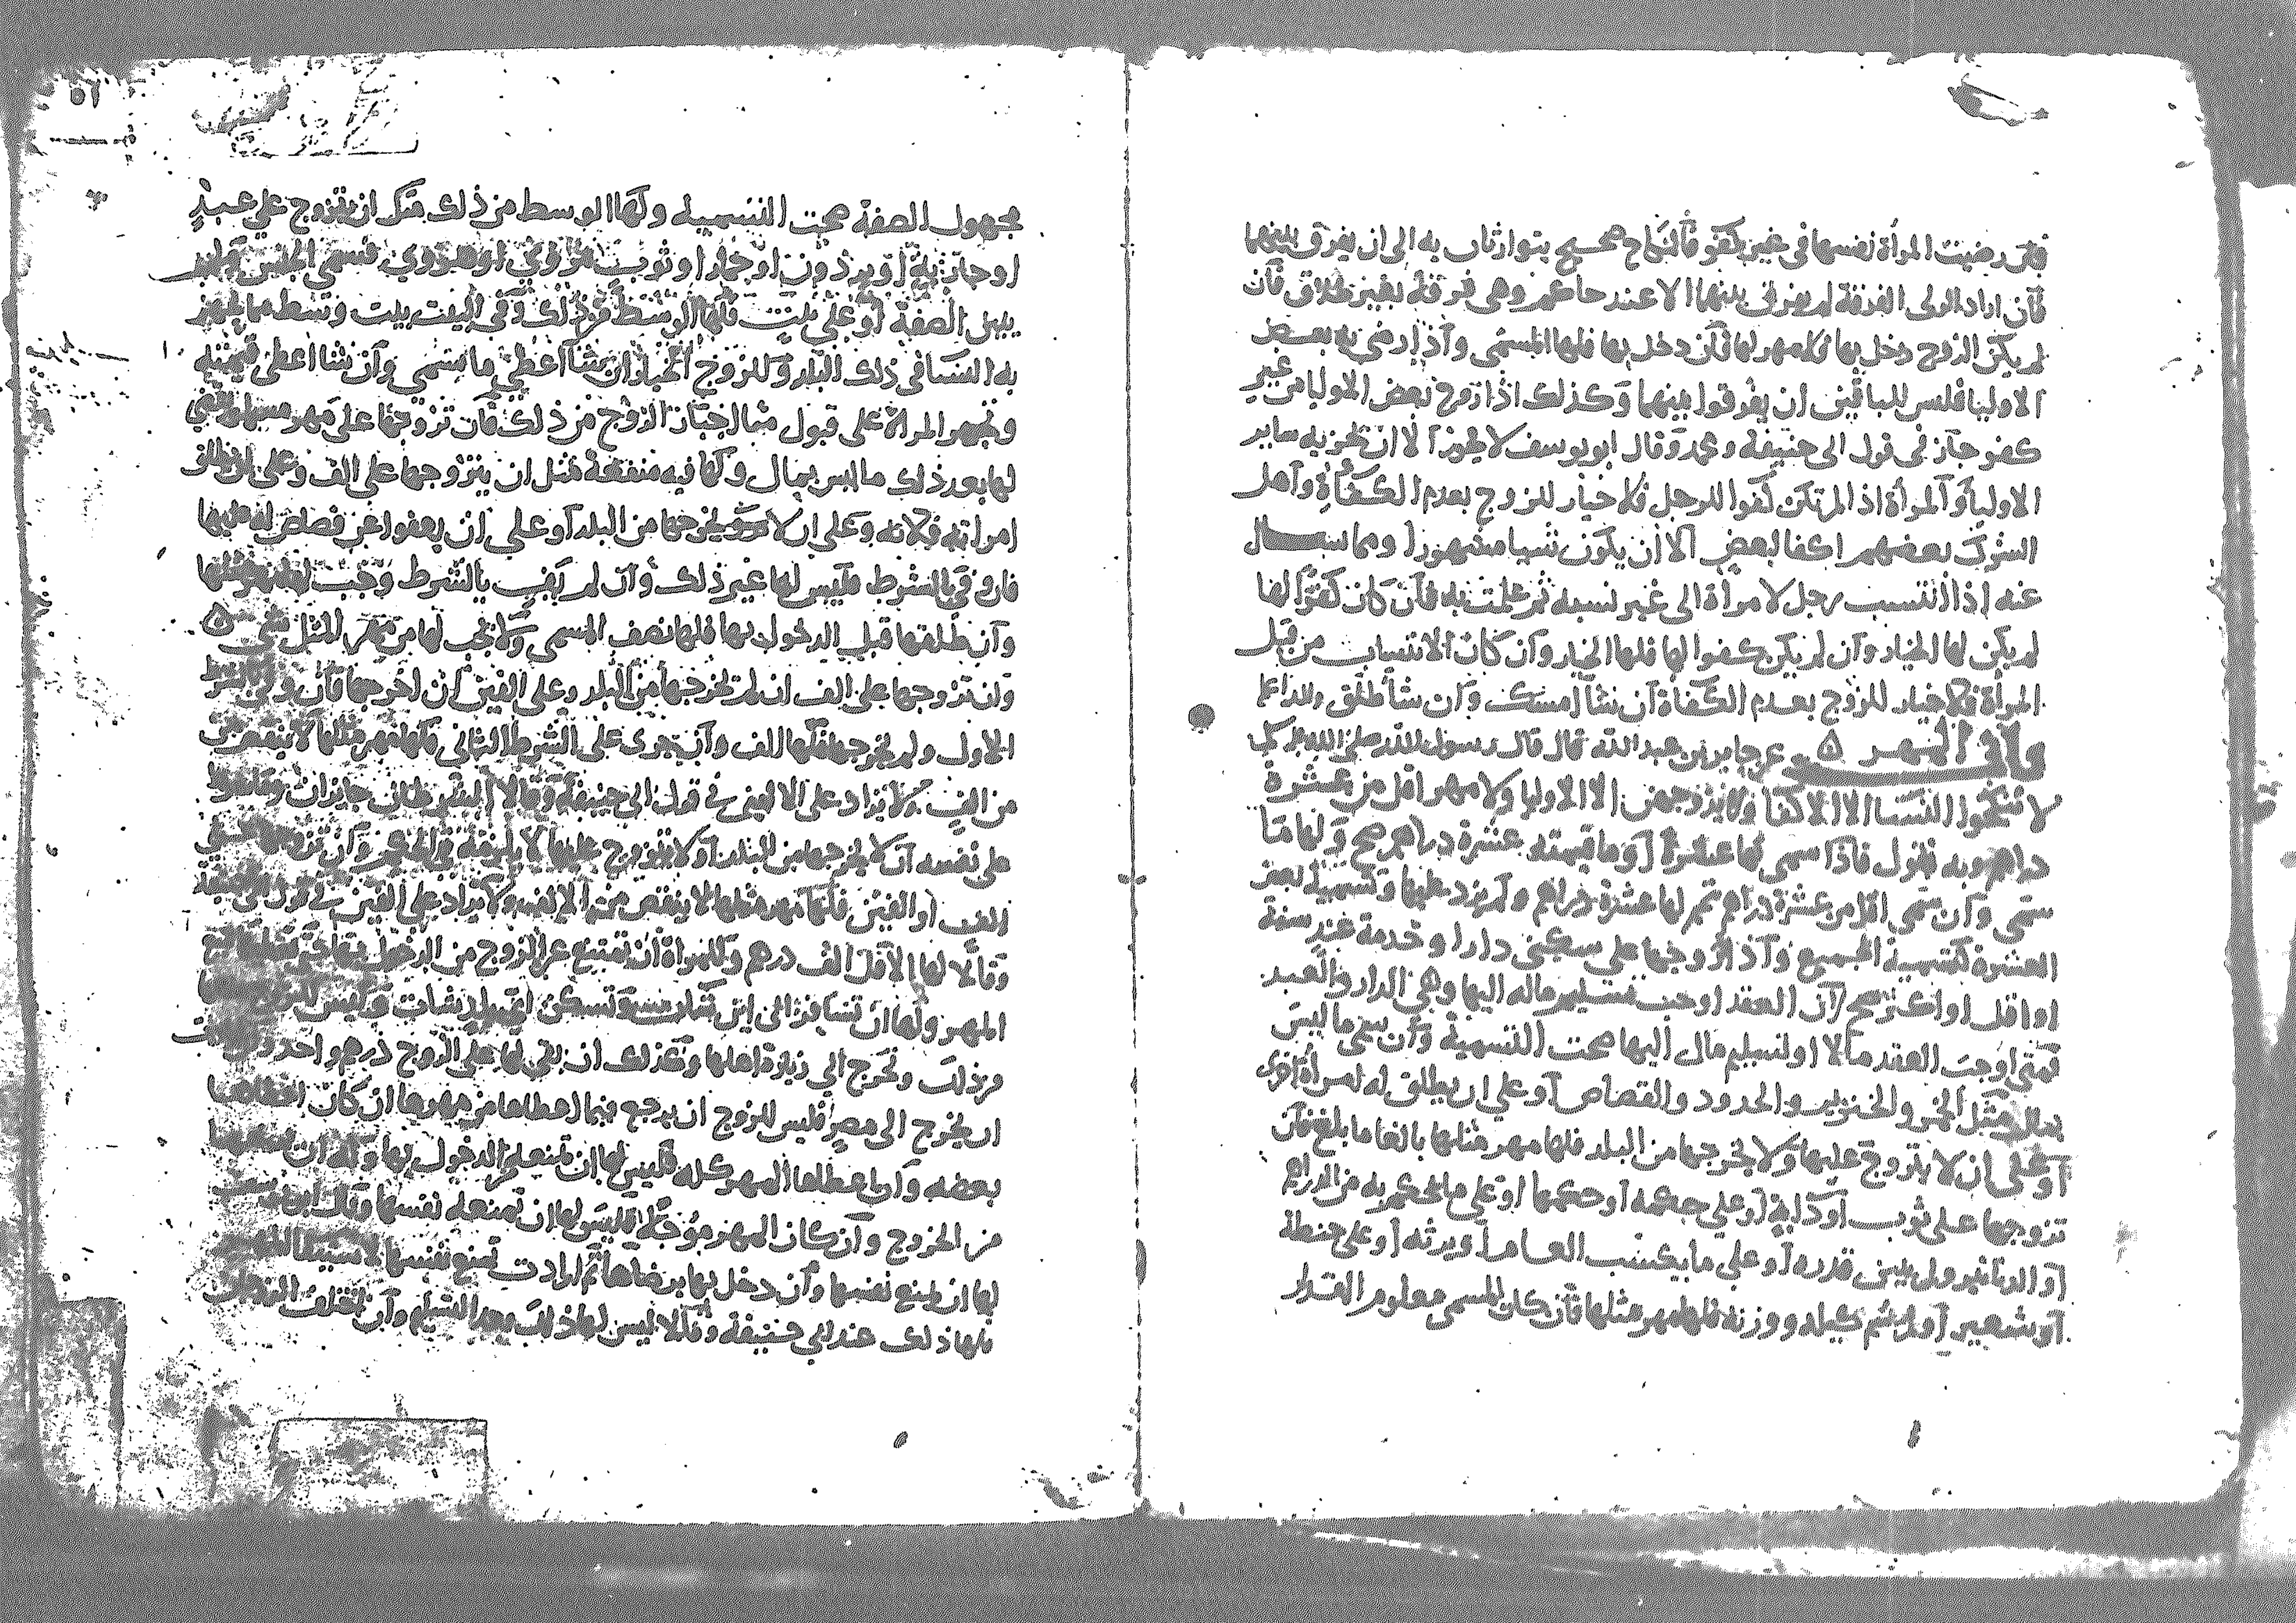 فان رضيت المراة نفسها فى غير كفو فالنكاح صحيح يتوارثان به الى ان يفرق بينهما
فان اراد الولى الفرقة لم يفرق بينهما الا عند حاكم وهى فرقة بغير طلاق فان
لم يكن الزوج دخل بها فلا مهر لها فان دخل بها فلها المسمى واذا رضى به بعض
الاوليا فليس للباقين ان يفرقوا بينهما وكذلك اذا زوج بعض الاوليا من غير
كفو جاز فى قول ابى حنيفة ومحمد وقال ابو يوسف لا يجوز الا ان تجزيه ساير
الاوليا والمراة اذا لم تكن كفوا للرجل فلا خيار للزوج بعدم الكفاة واهل
الشرك بعضهم اكفا لبعض الا ان يكون نسبا مشهورا ومما سال
عنه اذا انتسب رجل لامراة الى غير نسبه ثم علمت به فان كان كفوا لها
لم يكن لها الخيار وان لم يكن كفوا لها فلها الخيار وان كان الانتساب من قبل
المراة فلا خيار للزوج بعدم الكفاة ان شا امسك وان شا طلق والله اعلم
المهر عن جابر بن عبد الله قال قال رسول الله صلى الله
لا تنكحوا النسا الا الاكفا ولا يزوجهن الا الاوليا ولا مهر اقل من عشرة
دراهم وبه نقول فاذا سمى لها عشرة او ما قيمته عشرة دراهم صح ولها ما
سمى وان سمى اقل من عشرة دراهم تمم لها عشرة دراهم ولم يزد عليها وتسمية بعض
العشرة كتسمية الجميع واذا تزوجها على سكنى دار او خدمة عبد سنة
او اقل او اكثر صح لان العقد اوجب تسليم ماله اليها وهى الدار والعبد
فمتى اوجب العقد مالا او تسليم مال اليها صحت التسمية وان سمى ما ليس
بمال مثل الخمر والخنزير والحدود والقصاص او على ان يطلق له امراة اخرى
او على ان لا يتزوج عليها ولا يخرجها من البلد فلها مهر مثلها بالغا ما بلغ فان
تزوجها على ثوب او دابة او على حكمه او حكمها او على ما يحكم به من الدراهم
او الدنانير ولم يبين قدره او على ما يكتسب العام او يرثه او على حنطة
او شعير لم يسم كيله ووزنه فلها مهر مثلها فان كان المسمى معلوم القدر
مجهول الصفة صحت التسمية ولها الوسط من ذلك مثل ان يتزوج على عبد
او جارية او برذون او حمار او ثوب مروى او هروى فسمى الجنس ولم
يبين الصفة او على بيت فلها الوسط من ذلك وفى البيت بيت وسط مما يجهز
به النسا فى ذلك البلد وللزوج الخيار ان شا اعطى ما سمى وان شا اعطى قيمته
وتجبر المراة على قبول ما اختار الزوج من ذلك فان تزوجها على مهر مسمى
لها بعد ذلك ما ليس بمال ولها فيه منفعة مثل ان يتزوجها على الف وعلى ان يطلق
امراته فلانه وعلى ان لا يخرجها من البلد او على ان يعفوا عن قصاص له عليها
فان وفى بالشرط فليس لها غير ذلك وان لم يف بالشرط وجب لها مهر مثلها
وان طلقها قبل الدخول بها فلها نصف المسمى ولا يجب لها من مهر المثل شى
وان تزوجها على الف ان لم يخرجها من البلد وعلى الفين ان اخرجها فان وفى بالشرط
الاول ولم يخرجها فلها الف وان جرى على الشرط الثانى فلها مهر مثلها لا ينقص
من الف ولا يزاد على الالفين فى قول ابى حنيفة وقالا الشرطان جايزان
على نفسه ان لا يخرجها من البلد او لا يتزوج عليها لا يلزمه فى الحكم وان تزوجها على
الف او الفين فلها مهر مثلها لا ينقص من الالف ولا يزاد على الفين فى قول ابى حنيفة
وقالا لها الاقل الف درهم وللمراة ان تمتنع على الزوج من الدخول بها حتى
المهر ولها ان تسافر الى اين شات وتسكن اى بلد شات وليس للزوج
من ذلك وتخرج الى زيارة اهلها وكذلك ان بقى لها على الزوج درهم واحد
ان يخرج الى مصر فليس للزوج ان يرجع فيما اعطاها من مهرها ان كان اعطاها
بعضه وان اعطاها المهر كله فليس لها ان تمنعه الدخول بها وله ان يمنعها
من الخروج وان كان المهر مؤجلا فليس لها ان تمنعه نفسها وقال ابو يوسف
لها ان تمنع نفسها وان دخل بها برضاها ثم ارادت تمنع نفسها لاستيفا
فلها ذلك عند ابى حنيفة وقالا ليس لها ذلك بعد التسليم وان اختلف